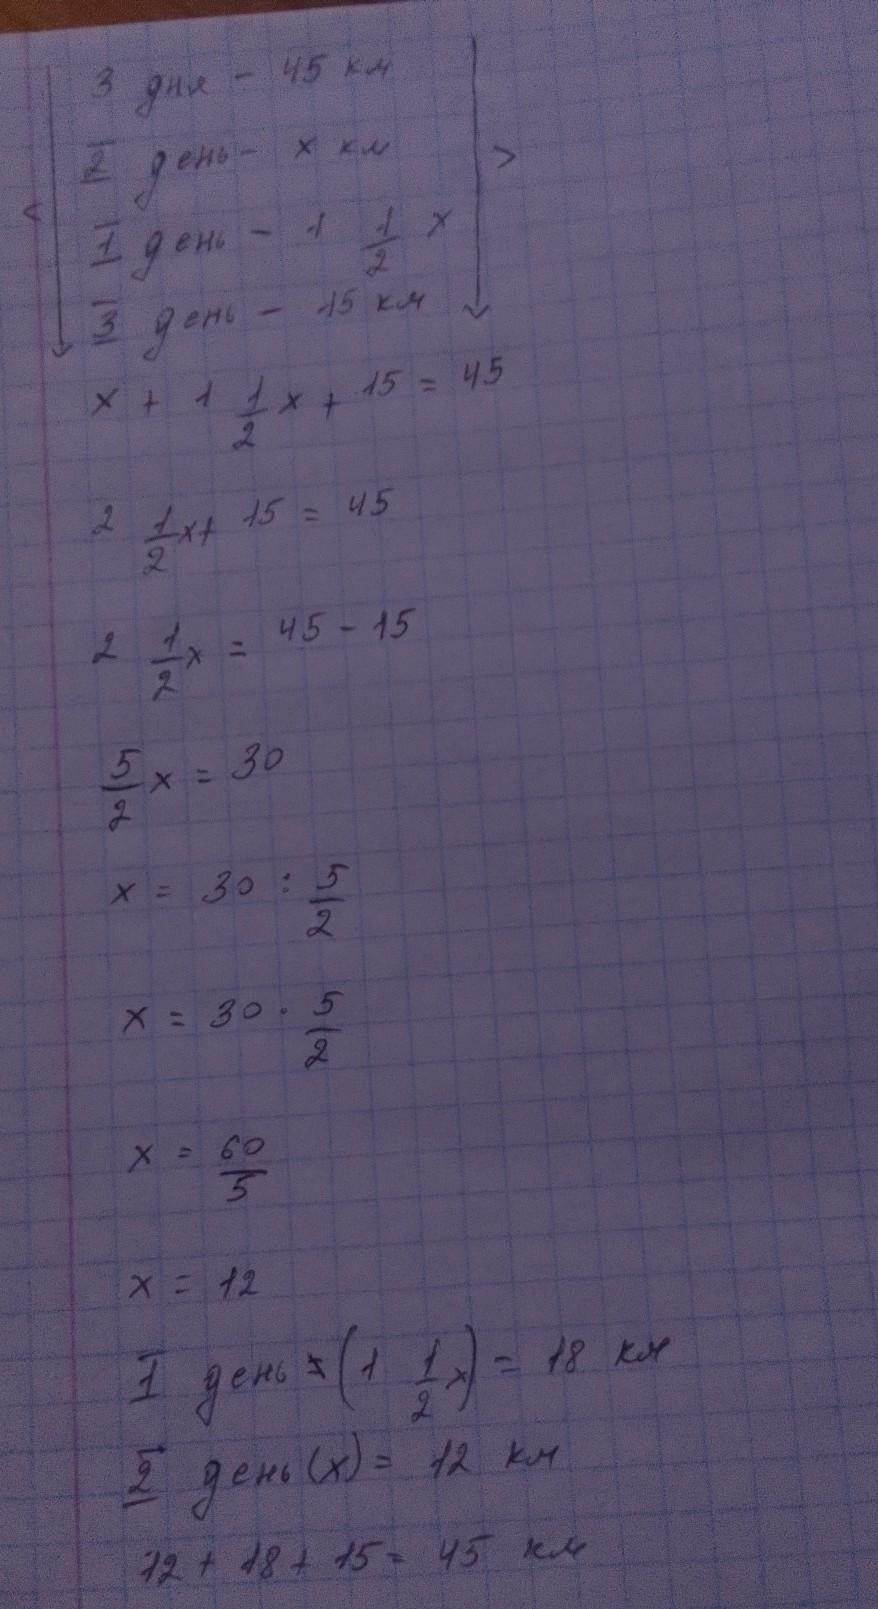 3 дня - 45 км
2 день - х км >
< 1 день - 1 1/2 х
3 день - 15 км
х + 1 1/2 х + 15 = 45
2 1/2 х + 15 = 45
2 1/2 х = 45 - 15
5/2 х = 30
х = 30 : 5/2
х = 30 · 5/2
х = 60/5
х = 12
1 день = (1 1/2 х) = 18 км
2 день (х) = 12 км
12 + 18 + 15 = 45 км